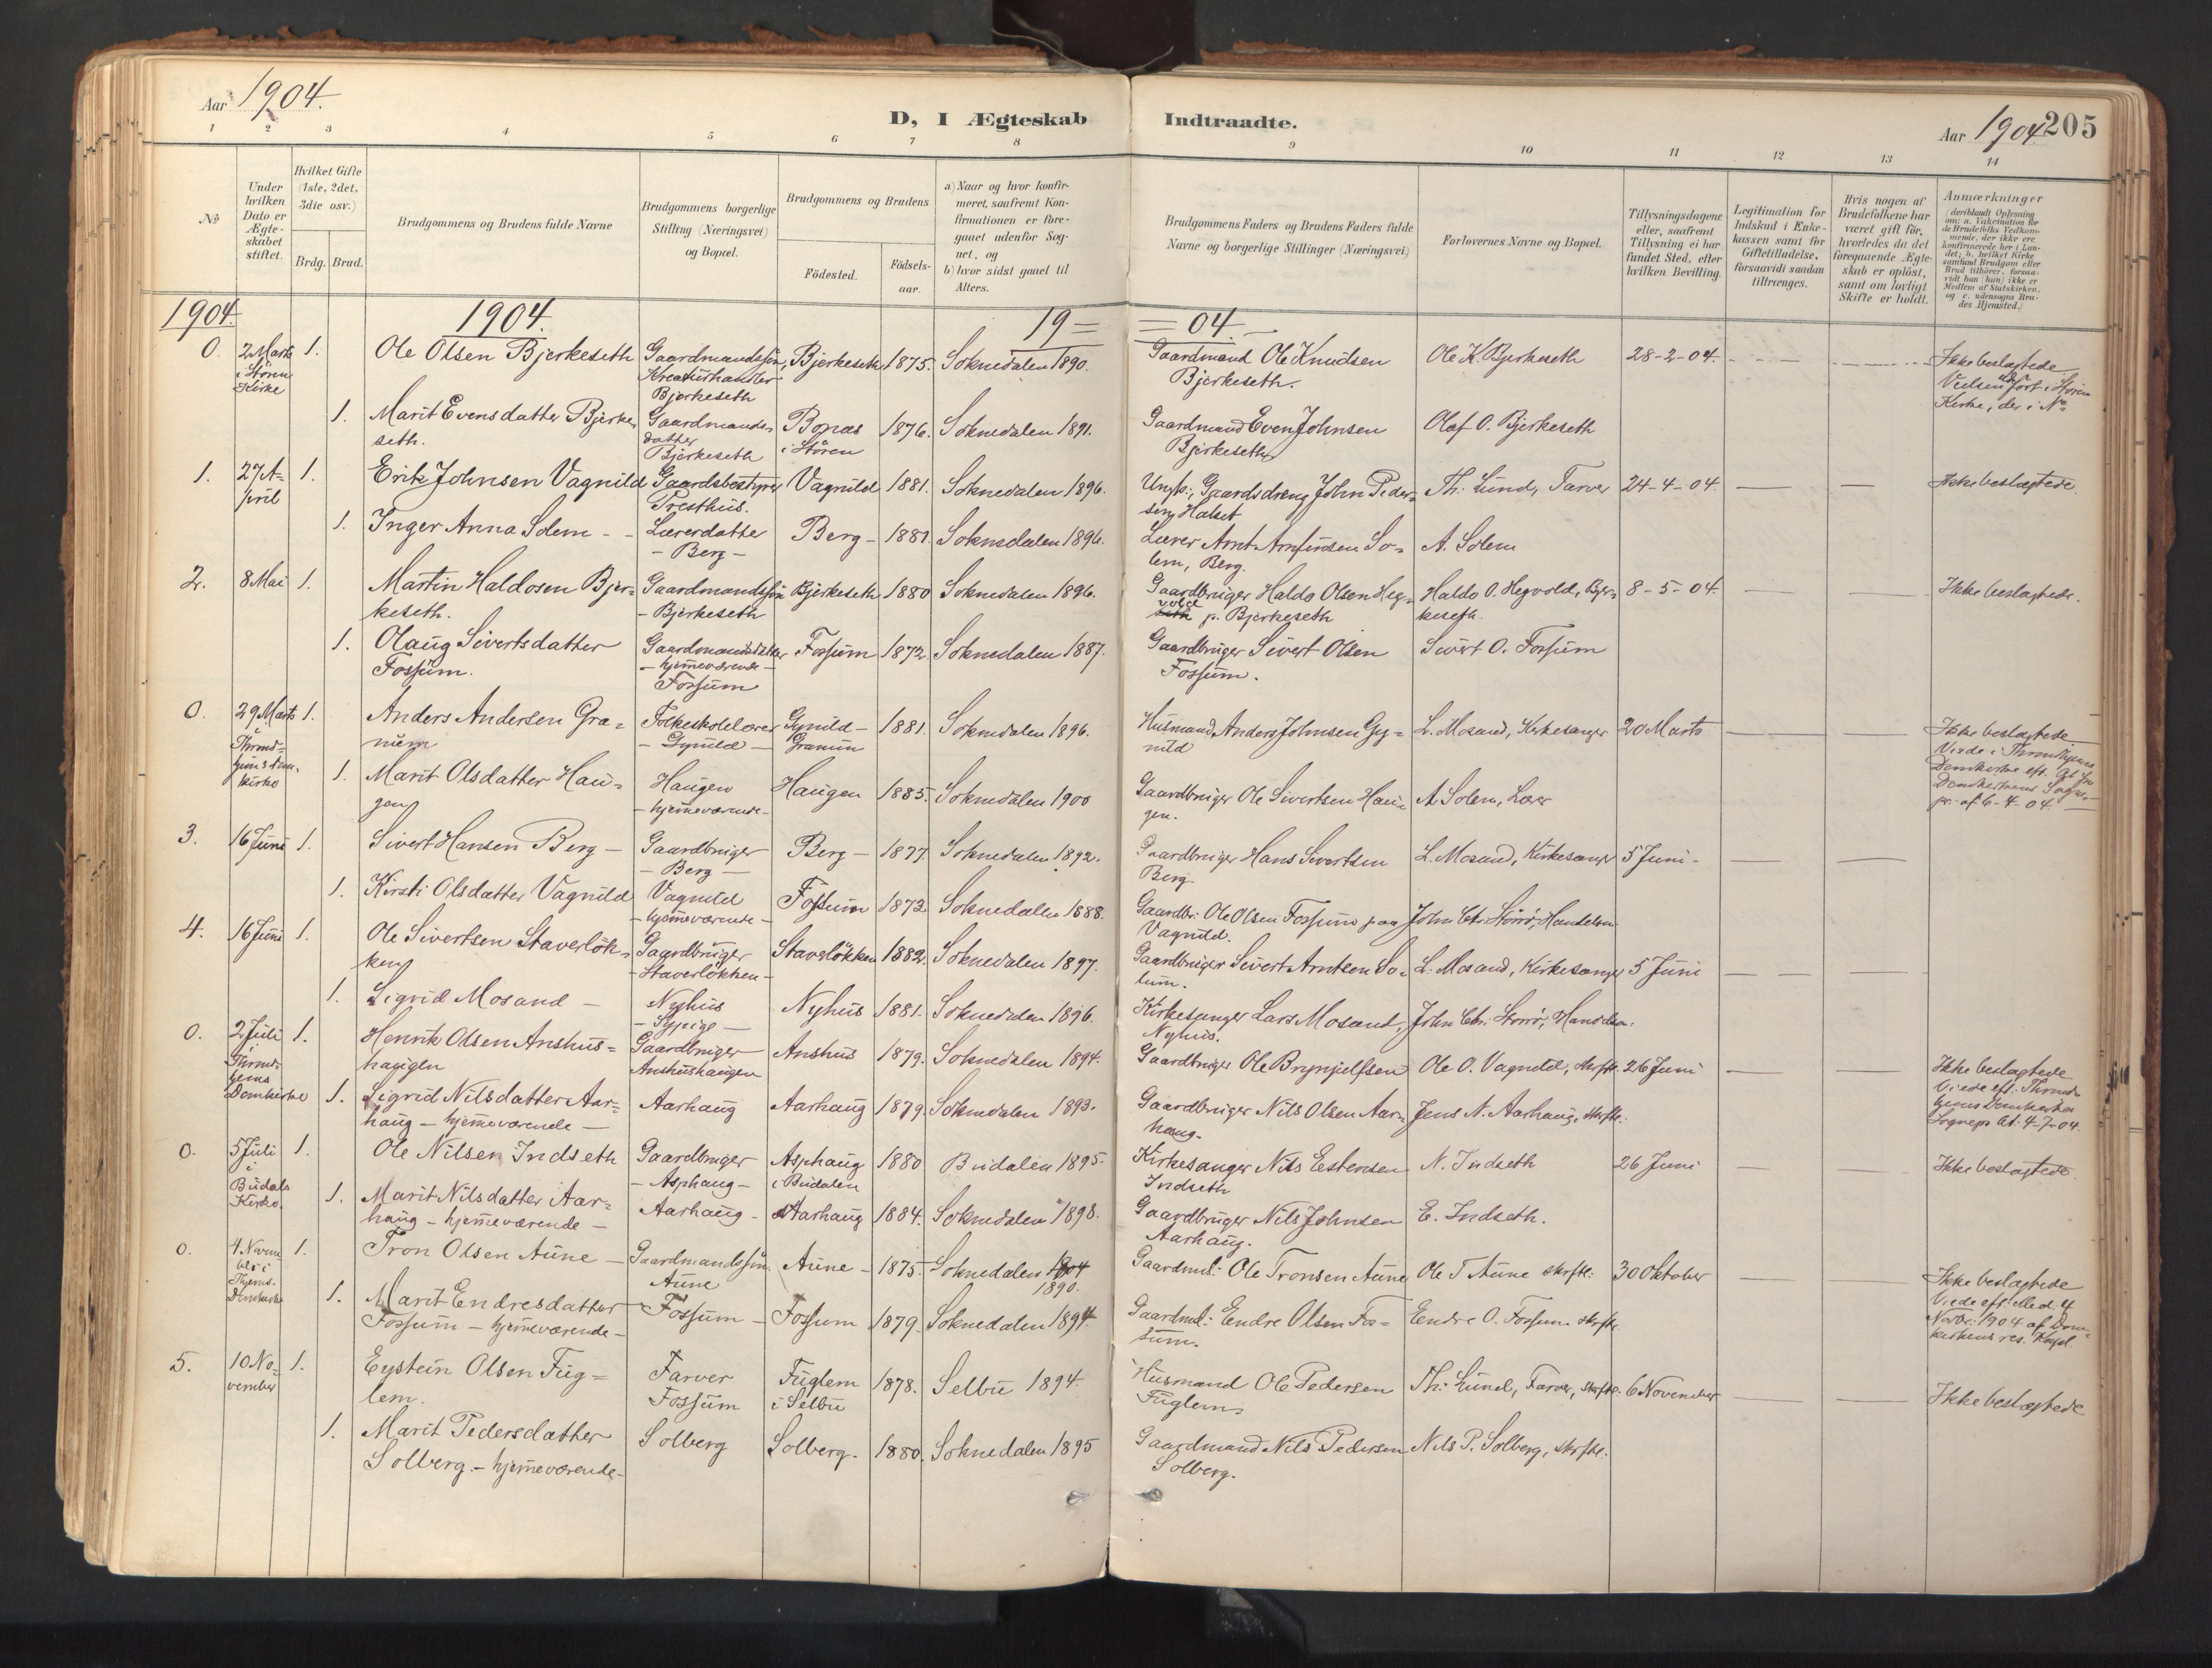 Aar 1904.
D, I Ægteskab Indtraadte.
Aar 1904 205
1 2 3 4 5 6 7 8 9 10 11 12 13 14
No
Under hvilken Dato er Ægteskabet stiftet.
Hvilket Gifte (1ste, 2det, 3die osv.)
Brdg. Brud.
Brudgommens og Brudens fulde Navne
Brudgommens borgerlige Stilling (Næringsvei) og Bopæl.
Brudgommens og Brudens
Födested.
Födsels-aar.
a) Naar og hvor konfirmeret, saafremt Konfirmationen er foregaaet udenfor Sognet, og
b) hvor sidst gaaet til Alters.
Brudgommens Faders og Brudens Faders fulde Navne og borgerlige Stillinger (Næringsvei)
Forlovernes Navne og Bopæl.
Tillysningsdagene eller, saafremt Tillysning ei har fundet Sted, efter hvilken Bevilling.
Legitimation for Indskud i Enkekassen samt for Giftetilladelse, forsaavidt saadan tiltrænges.
Hvis nogen af Brudefolkene har været gift för, hvorledes da det foregaaende Ægteskab er oplöst, samt om lovligt Skifte er holdt.
Anmærkninger (deriblandt Oplysning om: a. Vakcination for de Brudefolks Vedkommende, der ikke ere konfirmerede her i Landet; b. hvilket Kirkesamfund Brudgom eller Brud tilhörer, forsaavidt han (hun) ikke er Medlem af Statskirken, og c. udensogns Brudes Hjemsted.)
1904. 1904. 19 = = 04.
0. 2 Marts i Stören Kirke 1. Ole Olsen Bjerkeseth Gaardmandssön, Kreaturhandler Bjerkeseth Bjerkeseth 1875. Soknedalen 1890. Gaardmand Ole Knudsen Bjerkeseth. Ole K. Bjerkeseth 28-2-04. Ikke beslægtede Vielsen fört i Stören Kirke, der i No
1. Marit Evensdatter Bjerkeseth. Gaardmandsdatter Bjerkeseth Bonæs i Stören 1876. Soknedalen 1891. Gaardmand Even Johnsen Bjerkeseth Olaf O. Bjerkeseth
1. 27 April 1. Erik Johnsen Vagnild Gaardsbestyrer Presthus. Vagnild 1881. Soknedalen 1896. Ungk., Gaardsdreng John Pedersen Halset Th. Lund, Farver 24-4-04. Ikke beslægtede.
1. Inger Anna Solem - Lærerdatter - Berg - Berg - 1881. Soknedalen 1896. Lærer Arnt Arnfinsen Solem, Berg. A. Solem
2. 8 Mai 1. Martin Haldosen Bjerkeseth. Gaardmandssön - Bjerkeseth Bjerkeseth 1880 Soknedalen 1896. Gaardbruger Haldo Olsen Hegvold p. Bjerkeseth Haldo O. Hegvold, Bjerkeseth 8-5-04. Ikke beslægtede.
1. Olaug Sivertsdatter Fossum. Gaardmandsdatter - hjemmeværende - Fossum Fossum 1872. Soknedalen 1887. Gaardbruger Sivert Olsen Fossum. Sivert O. Fossum
0. 29 Marts i Throndhjems Domkirke 1. Anders Andersen Granum Folkeskolelærer - Gynild - Gynild - Granum 1881. Soknedalen 1896. Husmand Anders Johnsen Gynild L. Mosand, Kirkesanger 20 Marts Ikke beslægtede Viede i Throndhjems Domkirke eft. At. fra Domkirkens Sognepr. af 6-4-04.
1. Marit Olsdatter Haugen Haugen - hjemmeværende - Haugen 1885. Soknedalen 1900 Gaardbruger Ole Sivertsen Haugen. A. Solem, Lærer
3. 16 Juni 1. Sivert Hansen Berg - Gaardbruger - Berg - Berg - 1877. Soknedalen 1892. Gaardbruger Hans Sivertsen Berg L. Mosand, Kirkesanger 5 Juni -
1. Kirsti Olsdatter Vagnild Vagnild - hjemmeværende - Fossum 1873 Soknedalen 1888. Gaardbr. Ole Olsen Fossum paa Vagnild. John Chr. Storrö, Handelsm.
4. 16 Juni 1. Ole Sivertsen Staverlökken Gaardbruger - Staverlökken - Staverlökken 1882. Soknedalen 1897. Gaardbruger Sivert Arntsen Solum. L. Mosand, Kirkesanger 5 Juni
1. Sigrid Mosand - Nyhus - Sypige - Nyhus 1881. Soknedalen 1896. Kirkesanger Lars Mosand, Nyhus. John Chr. Storrö, Handelsm.
0. 2 Juli i Throndhjems Domkirke 1. Henrik Olsen Anshushaugen Gaardbruger Anshushaugen Anshus 1879. Soknedalen 1894. Gaardbruger Ole Brynjelfsen Ole O. Vagnild, skrftl. 26 Juni Ikke beslægtede Viede eft. Throndhjems Domkirkes Sognepr. At. 4-7-04.
1. Sigrid Nilsdatter Aarhaug - hjemmeværende - Aarhaug Aarhaug 1879. Soknedalen 1893. Gaardbruger Nils Olsen Aarhaug. Jens N. Aarhaug, skrftl.
0. 5 Juli i Budals Kirke. 1. Ole Nilsen Indseth Gaardbruger - Asphaug - Asphaug i Budalen 1880 Budalen 1895. Kirkesanger Nils Estensen Indseth N. Indseth 26 Juni Ikke beslægtede.
1. Marit Nilsdatter Aarhaug - hjemmeværende - Aarhaug - Aarhaug 1884. Soknedalen 1898. Gaardbruger Nils Johnsen Aarhaug. E. Indseth.
0. 4 November i Thjems Domkirke 1. Tron Olsen Aune - Gaardmandssön Aune Aune - 1875. Soknedalen 1904 1890. Gaardmd.: Ole Tronsen Aune Ole T. Aune skrftl. 30 Oktober Ikke beslægtede Viede eft. Med. 4 Novbr. 1904 af Domkirkens res. Kapel.
1. Marit Endresdatter Fossum - hjemmeværende - Fossum - Fossum 1879. Soknedalen 1894. Gaardmd.: Endre Olsen Fossum. Endre O. Fossum skrftl.
5. 10 November 1. Eystein Olsen Fuglem. Farver Fossum Fuglem i Selbu 1878. Selbu 1894. Husmand Ole Pedersen Fuglem. Th. Lund, Farver, skrftl. 6 November Ikke beslægtede
1. Marit Pedersdatter Solberg. - hjemmeværende - Solberg Solberg. 1880. Soknedalen 1895 Gaardmand Nils Pedersen Solberg. Nils P. Solberg, skrftl.